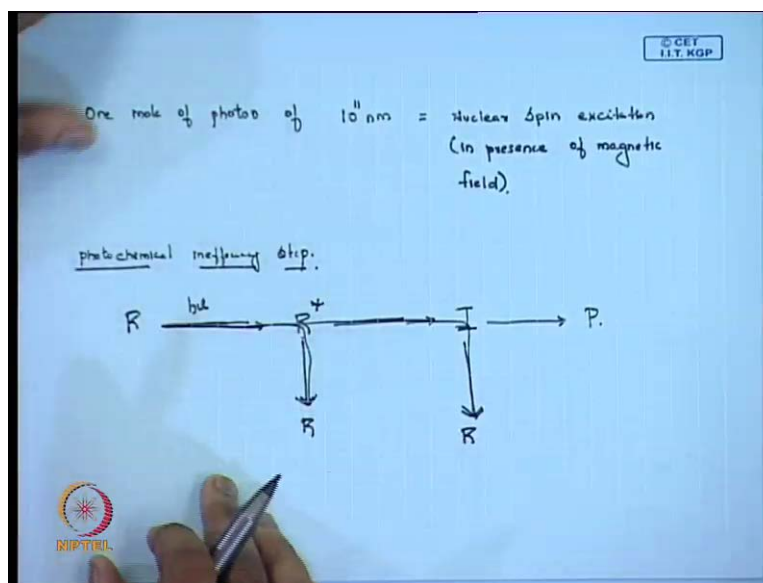 © CET
I.I.T. KGP
One mole of photon of 10¹¹ nm = Nuclear Spin excitation
(in presence of magnetic
field).
photochemical step.
R hν R* I P.
R R
NPTEL